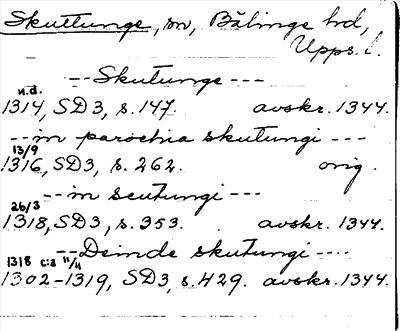 Skuttunge, sn, Bälinge hrd,
Upps. l.
--- Skutunge ---
n.d.
1314, SD3, s. 147. avskr. 1344.
--- in parochia skutungi ---
13/9
1316, SD3, s. 262. orig.
--- in scutungi ---
26/3
1318, SD3, s. 353. avskr. 1344.
--- Deinde skutungi ---
1318 c:a 11/11
1302-1319, SD3, s. 429. avskr. 1344.